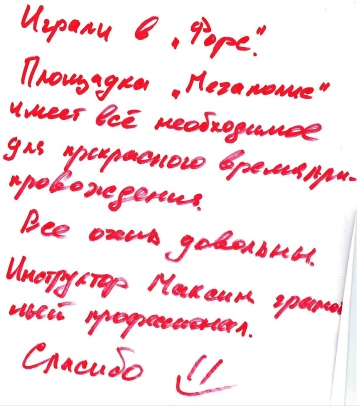 Играли в „Форс".
Площадка „Мегаполис"
имеет всё необходимое
для прекрасного времяпри-
провождения.
Все очень довольны.
Инструктор Максим грамот
ный профессионал.
Спасибо